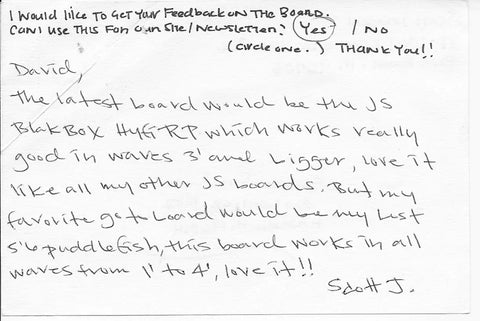 I would like to Get Your Feedback on The Board.
Can I use This For our Site/Newsletter? Yes / No
(circle one.) Thank You!!
David,
The latest board would be the JS
Blak Box HyGRP which works really
good in waves 3' and bigger, love it
like all my other JS boards. But my
favorite go to board would be my Lost
5'6 puddlefish, this board works in all
waves from 1' to 4', love it!!
Scott J.